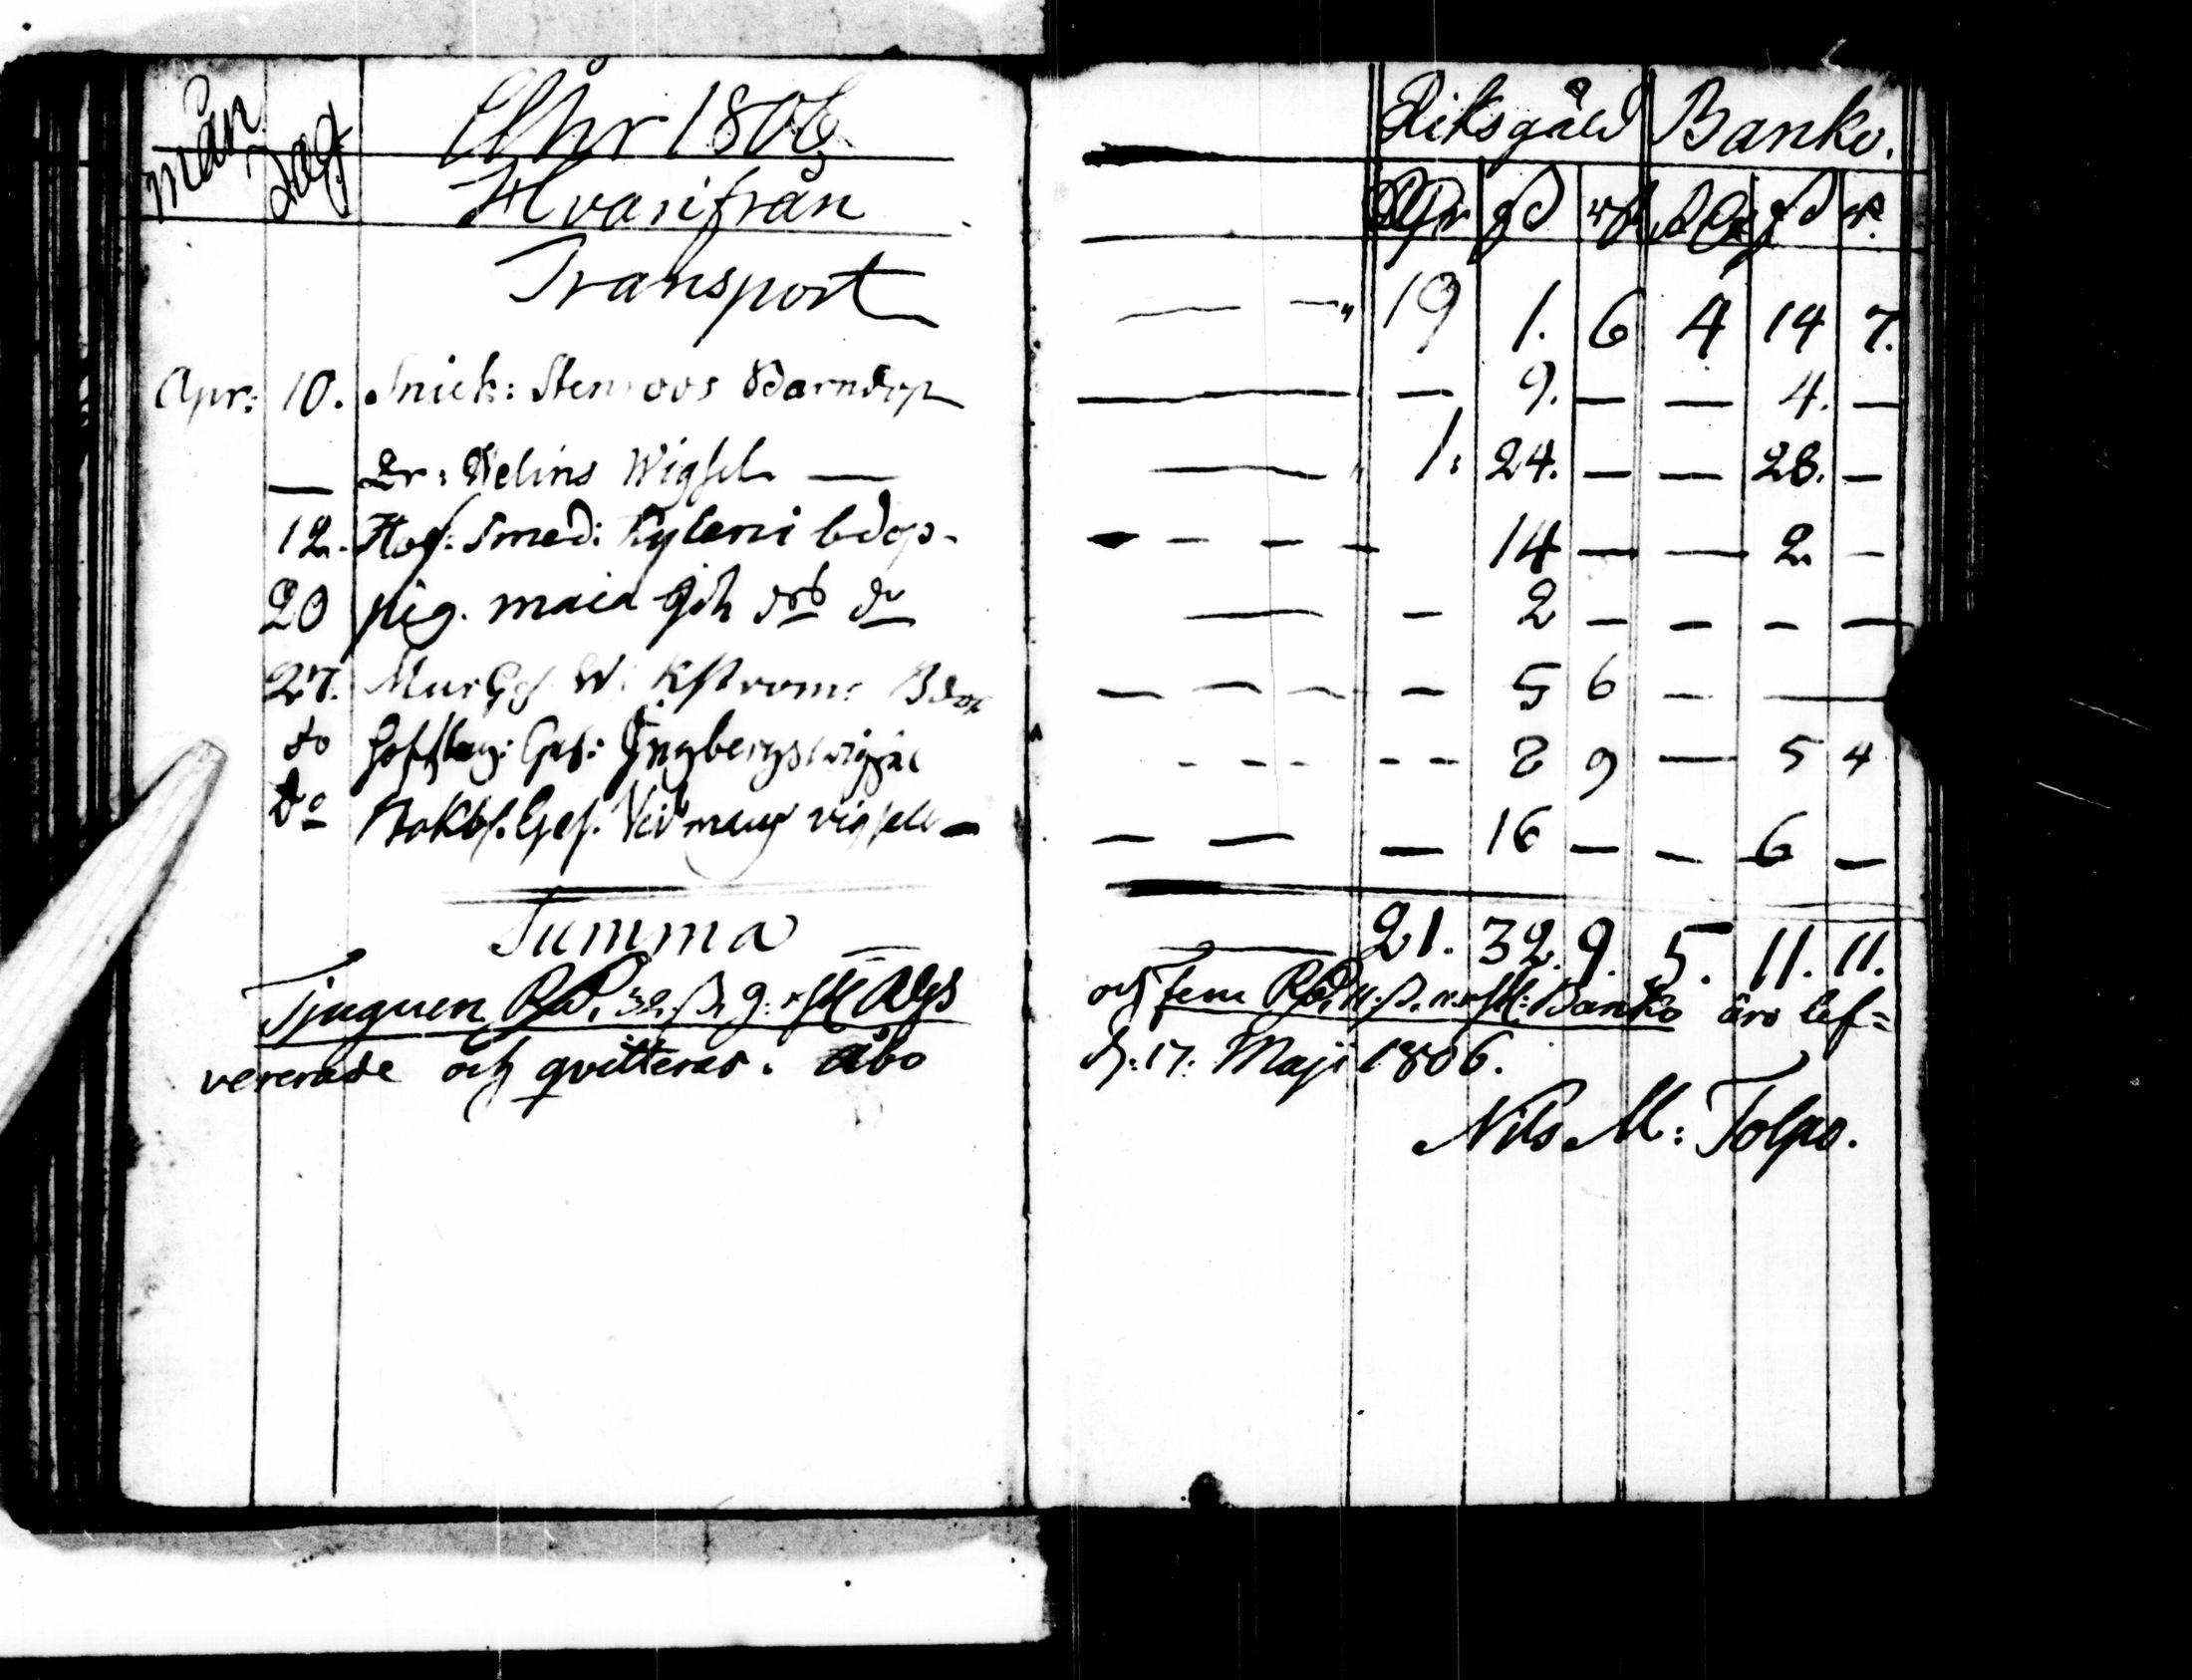 mån dag Åhr 1806 Riksgäld Banko.
Hvarifrån Rdr ß rst Rdr ß r.
Transport — — " 19 1. 6 4 14 7.
Apr: 10. Snick: Stenroos Barndop — — 9. — — 4. —
— Dr: Welins Wigsel — — " 1: 24. — — 28. —
12. Hof: Smed: Kyleni bdop - — — — 14 — — 2 —
20 pig. maia do — — 2 — — — —
27. Mur Ges W: kströms Bdop — — — — 5 6 — —
do Ges: Engbergs wigsel - - - - - 8 9 — 5 4
do Ges. vigsel — — — — 16 — — 6 —
Summa — 21. 32. 9. 5. 11. 11.
Tjuguen Rd. 32. ß. 9. rst Rgs och fem Rd. 11. ß. 11. rst: Banko äro lef=
vererade och qvitteras. Åbo d: 17: Maji 1806.
Nils M: Tolpo.